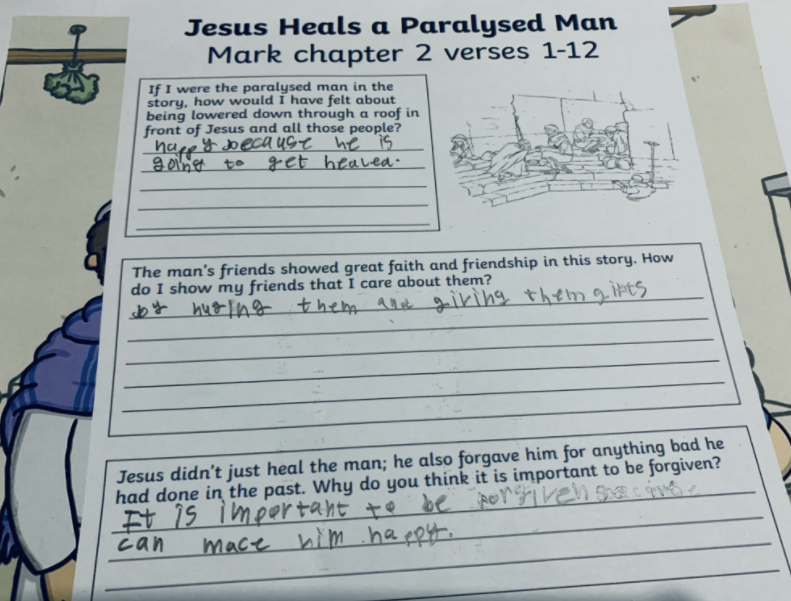 Jesus Heals a Paralysed Man
Mark chapter 2 verses 1-12
If I were the paralysed man in the
story, how would I have felt about
being lowered down through a roof in
front of Jesus and all those people?
happy because he is
going to get healed.
The man's friends showed great faith and friendship in this story. How
do I show my friends that I care about them?
by huging them and giving them gifts
Jesus didn't just heal the man; he also forgave him for anything bad he
had done in the past. Why do you think it is important to be forgiven?
It is important to be forgiven
can mace him happy.